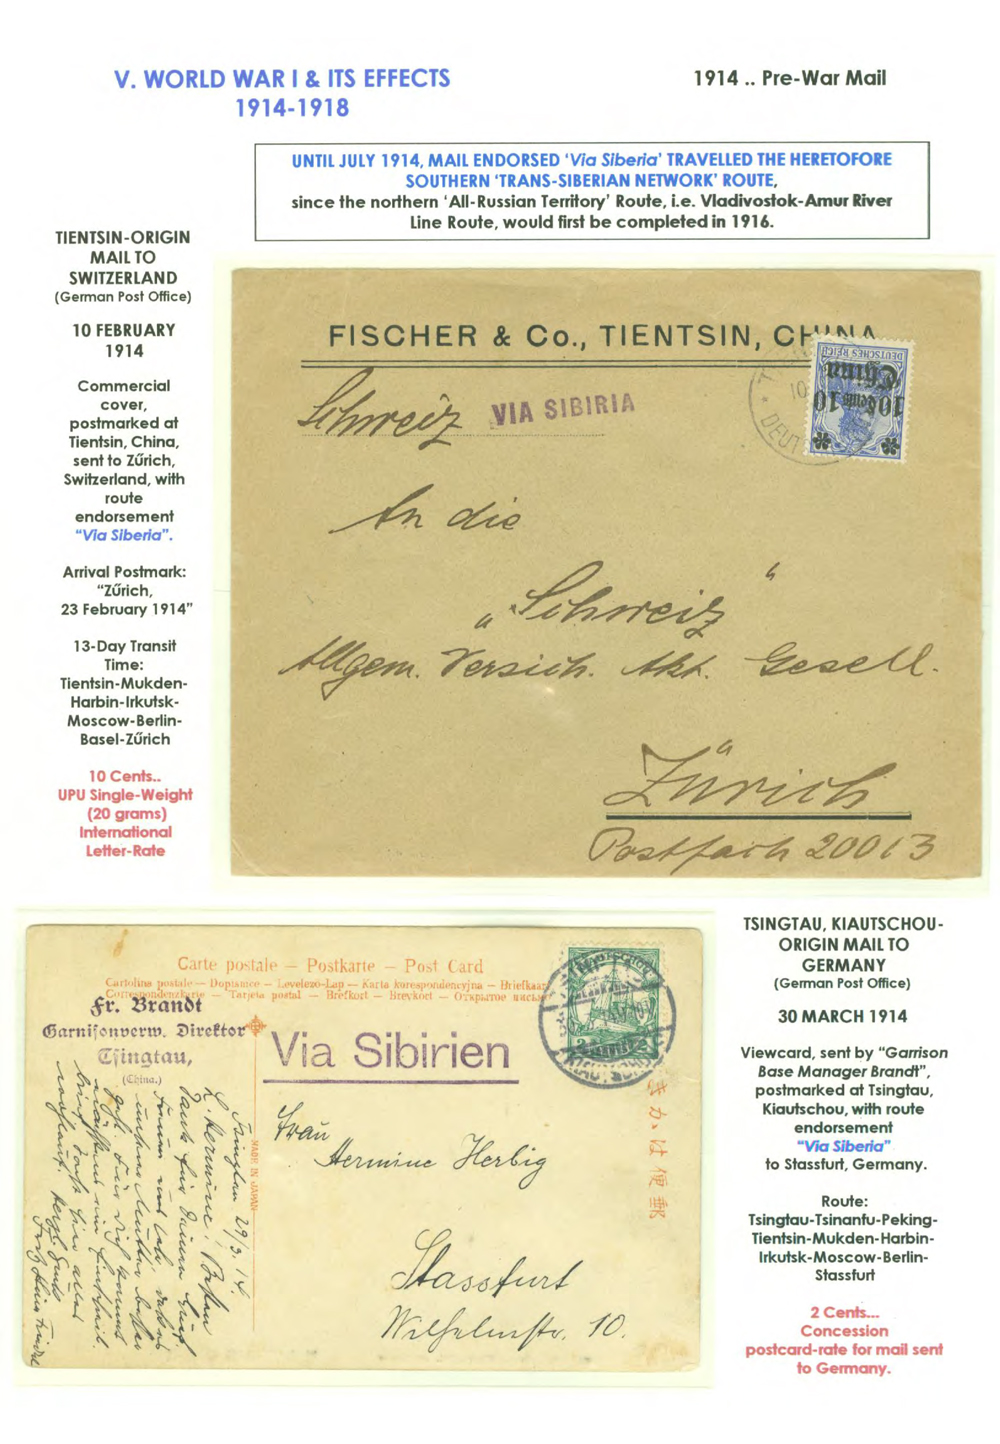 V. WORLD WAR I & ITS EFFECTS
1914-1918
1914 .. Pre-War Mail
UNTIL JULY 1914, MAIL ENDORSED 'Via Siberia' TRAVELLED THE HERETOFORE
SOUTHERN 'TRANS-SIBERIAN NETWORK' ROUTE,
since the northern 'All-Russian Territory' Route, i.e. Vladivostok-Amur River
Line Route, would first be completed in 1916.
TIENTSIN-ORIGIN
MAIL TO
SWITZERLAND
(German Post Office)
10 FEBRUARY
1914
Commercial
cover,
postmarked at
Tientsin, China,
sent to Zűrich,
Switzerland, with
route
endorsement
"Via Siberia".
Arrival Postmark:
"Zűrich,
23 February 1914"
13-Day Transit
Time:
Tientsin-Mukden-
Harbin-Irkutsk-
Moscow-Berlin-
Basel-Zűrich
10 Cents..
UPU Single-Weight
(20 grams)
International
Letter-Rate
FISCHER & Co., TIENTSIN, CHINA
Schweiz
VIA SIBIRIA
DEUTSCHES REICH
China
10 Cents 10
An die
"Schweiz"
Allgem. Versich. Akt. Gesell.
Zürich
Postfach 20013
Carte postale — Postkarte — Post Card
Cartolina postale — Dopisnice — Levelező-Lap — Karta korespondencyjna — Briefkaart
Correspondenzkarte — Tarjeta postal — Brefkort — Brevkort — Открытое письмо
Fr. Brandt
Garnisonverw. Direktor
Tsingtau,
(China.)
Via Sibirien
KIAUTSCHOU
MADE IN JAPAN
きかは便郵
Tsingtau 29/3. 14.
L. Hermine! Besten
Dank für Deinen
Frau
Hermine Herbig
Stassfurt
Wilhelmstr. 10.
TSINGTAU, KIAUTSCHOU-
ORIGIN MAIL TO
GERMANY
(German Post Office)
30 MARCH 1914
Viewcard, sent by "Garrison
Base Manager Brandt",
postmarked at Tsingtau,
Kiautschou, with route
endorsement
"Via Siberia"
to Stassfurt, Germany.
Route:
Tsingtau-Tsinanfu-Peking-
Tientsin-Mukden-Harbin-
Irkutsk-Moscow-Berlin-
Stassfurt
2 Cents...
Concession
postcard-rate for mail sent
to Germany.